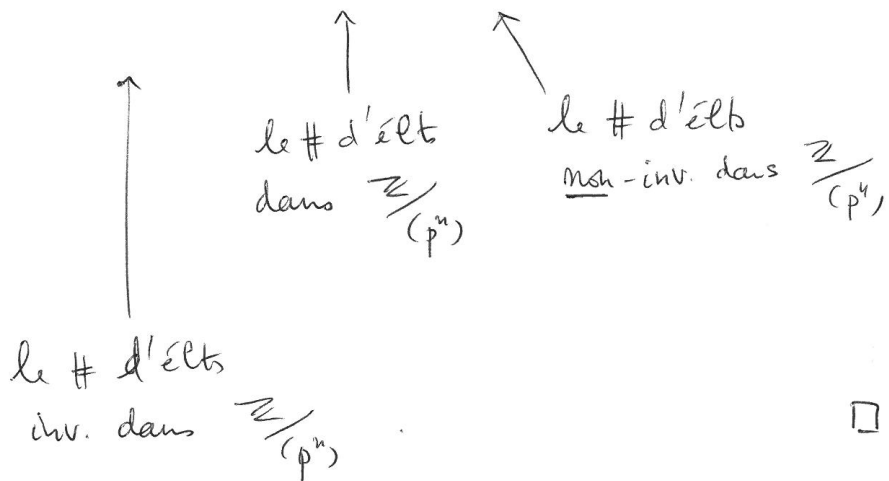 le # d'élt
dans ℤ/(pⁿ)
le # d'élts
non-inv. dans ℤ/(pⁿ)
le # d'élts
inv. dans ℤ/(pⁿ).
□